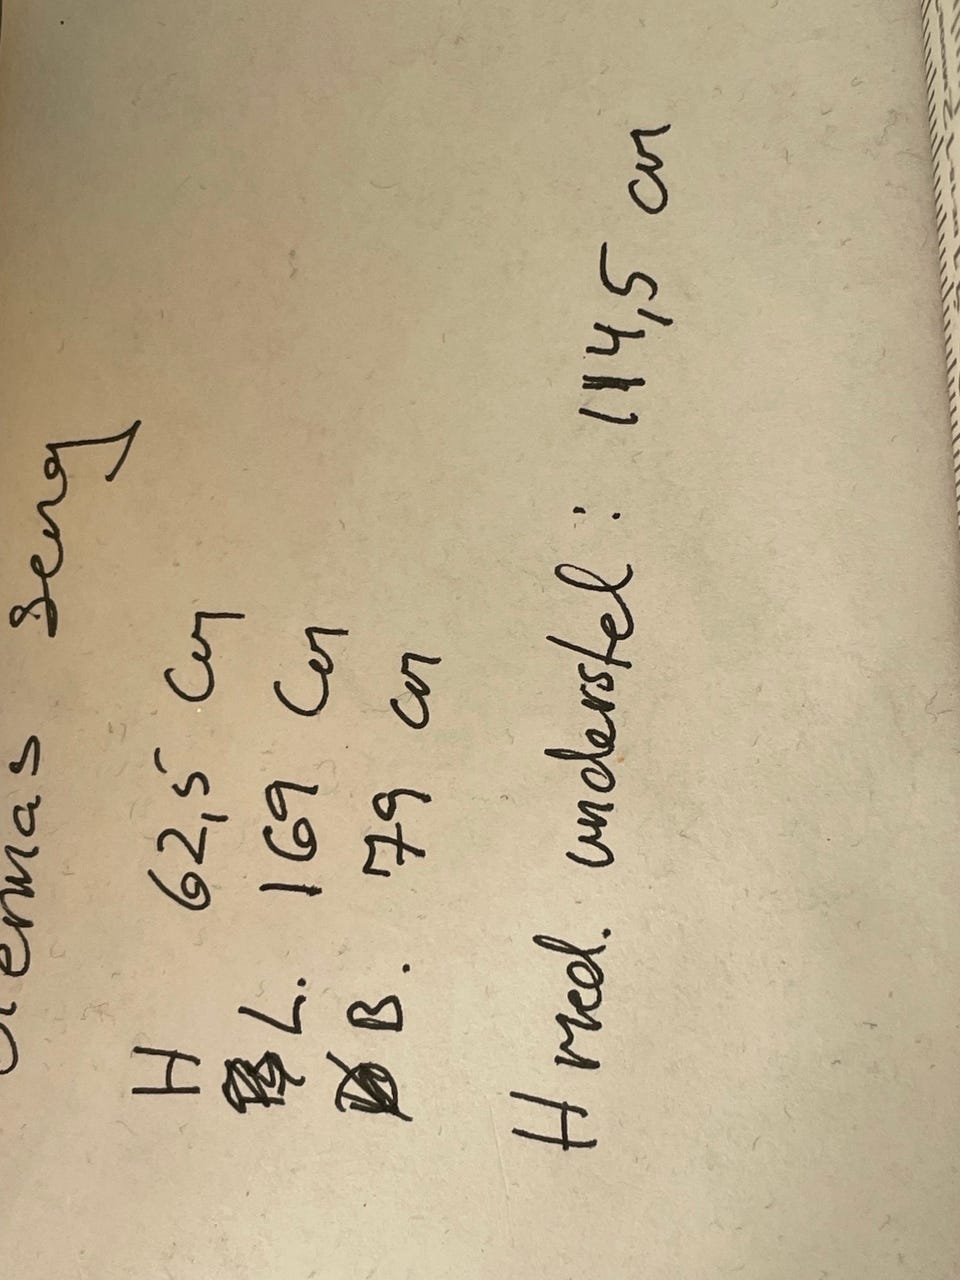 seng
H 62,5 cm
L. 169 cm
B. 79 cm
H med. understel: 114,5 cm